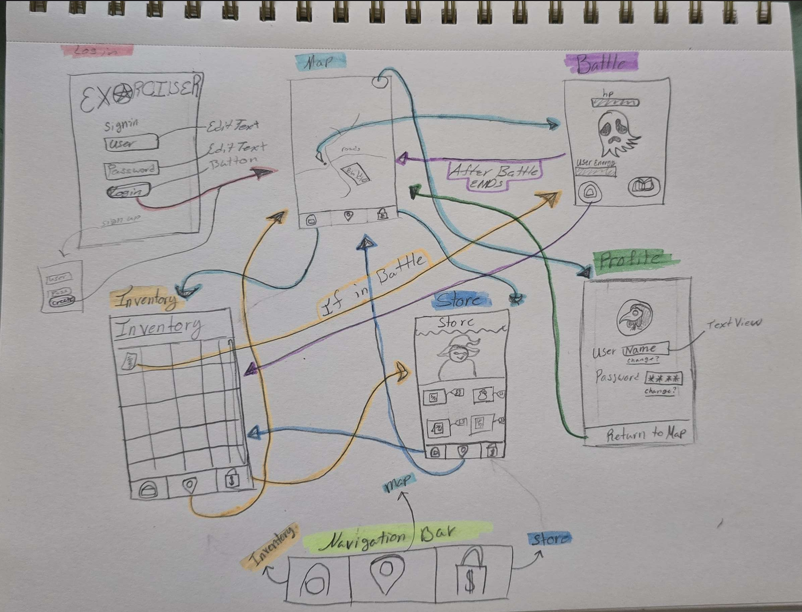 Login
EXORCISER
Signin
User
Password
Login
EditText
EditText
Button
Sign up
User
Pass
Create
Map
Battle
hp
User Energy
After Battle
ENDS
If in Battle
Inventory
Inventory
Store
Store
Profile
User Name
change?
Password ****
change?
Return to Map
TextView
Map
Navigation Bar
Inventory
Store
$